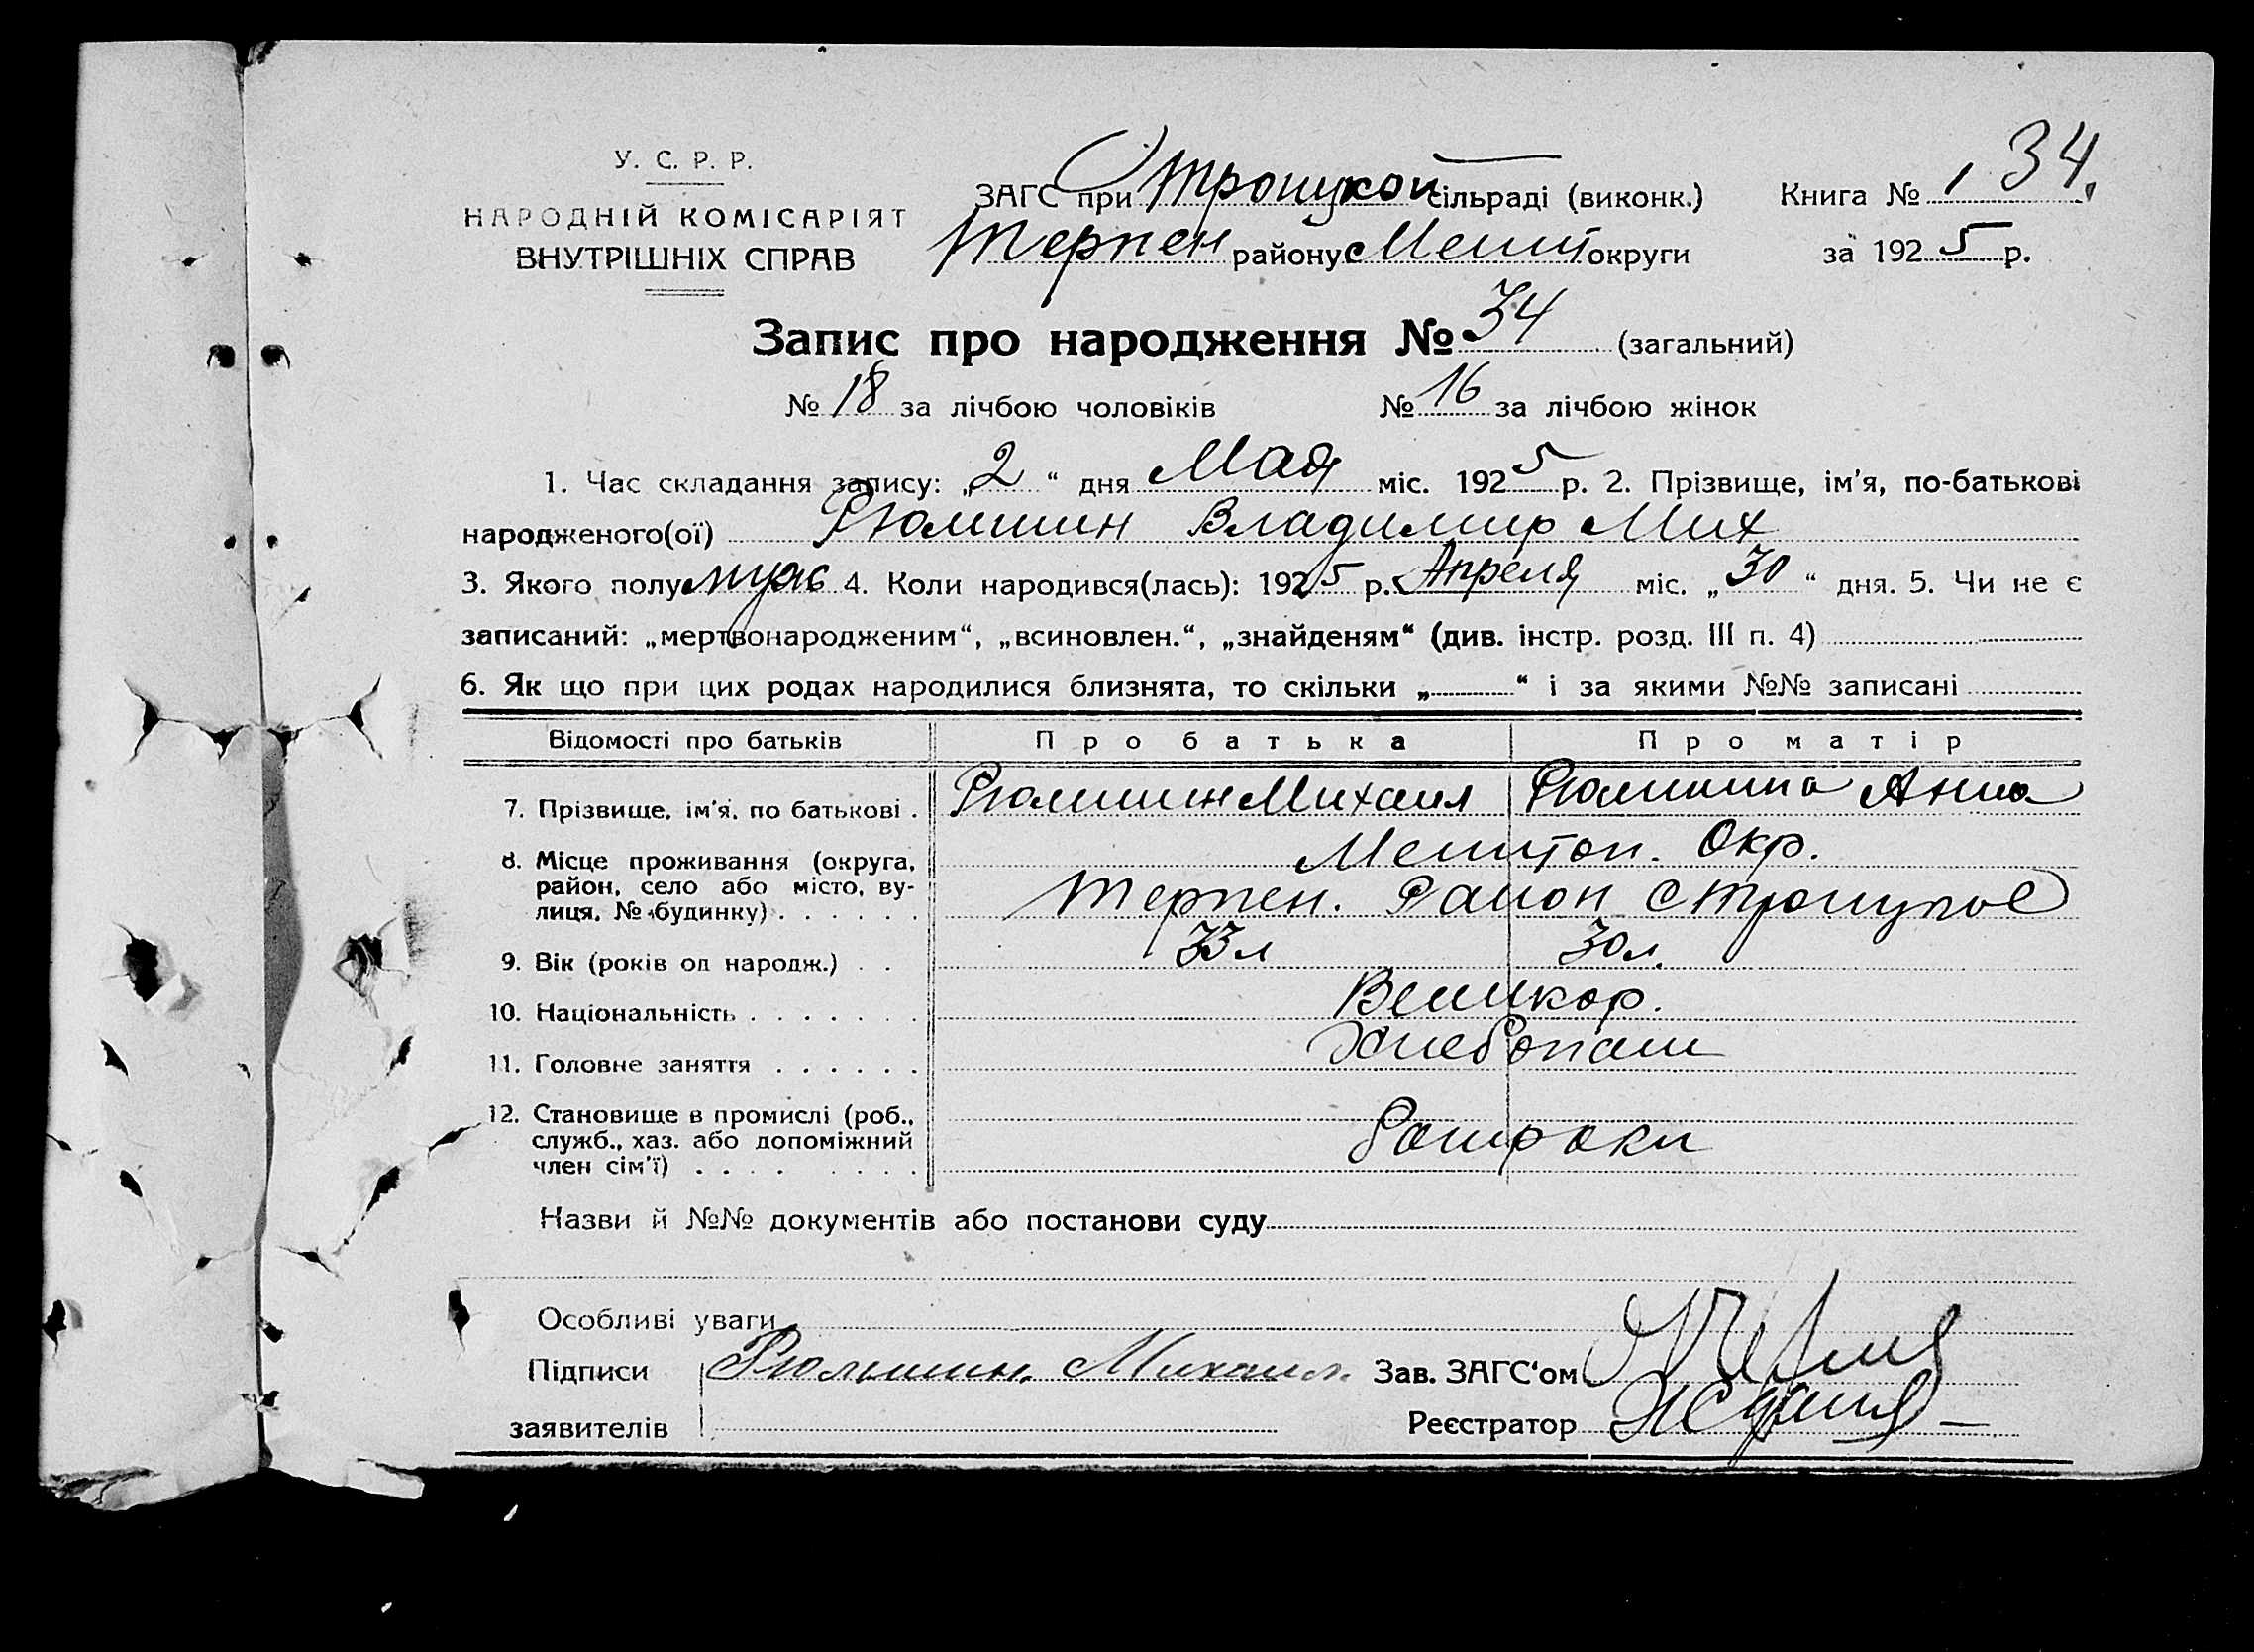 У. С. Р. Р.
НАРОДНІЙ КОМІСАРІЯТ
ВНУТРІШНІХ СПРАВ
ЗАГС при Троицкой сільраді (виконк.)
Терпен району Мелит округи
Книга № 1 34.
за 1925 р.
Запис про народження № 34 (загальний)
№ 18 за лічбою чоловіків № 16 за лічбою жінок
1. Час складання запису: „2“ дня Мая міс. 1925 р. 2. Прізвище, ім'я, по-батькові
народженого(ої) Рюмшин Владимир Мих
3. Якого полу муж 4. Коли народився(лась): 1925 р. Апреля міс. „30“ дня. 5. Чи не є
записаний: „мертвонародженим“, „всиновлен.“, „знайденям“ (див. інстр. розд. III п. 4)
6. Як що при цих родах народилися близнята, то скільки „ “ і за якими №№ записані
Відомості про батьків Про батька Про матір
7. Прізвище, ім'я, по батькові . Рюмшин Михаил Рюмшина Анна
8. Місце проживання (округа, Мелитоп. Окр.
район, село або місто, ву-
лиця, № будинку) . . . . . . Терпен. Район с Троицкое
9. Вік (років од народж.) . . 33 л 30 л.
10. Національність . . . . . . . Великор.
11. Головне заняття . . . . . . Хлебопаш
12. Становище в промислі (роб.,
служб., хаз. або допоміжний
член сім'ї) . . . . . . . .
Назви й №№ документів або постанови суду
Особливі уваги
Підписи Рюмшин. Михаил. Зав. ЗАГС'ом
заявителів Реєстратор